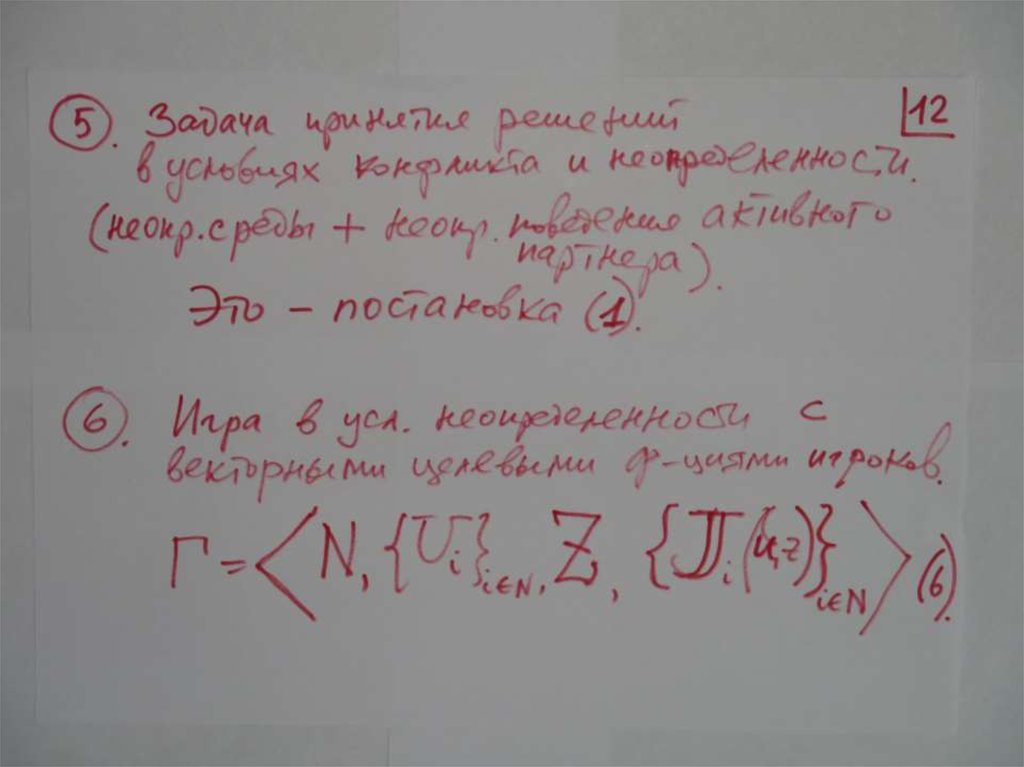 12
5. Задача принятия решений
в условиях конфликта и неопределенности.
(неопр. среды + неопр. поведение активного
партнера).
Это – постановка (1).
6. Игра в усл. неопределенности с
векторными целевыми ф-циями игроков.
Г = ⟨N, {U_i}_{i∈N}, Z, {J_i(u,z)}_{i∈N}⟩ (6).